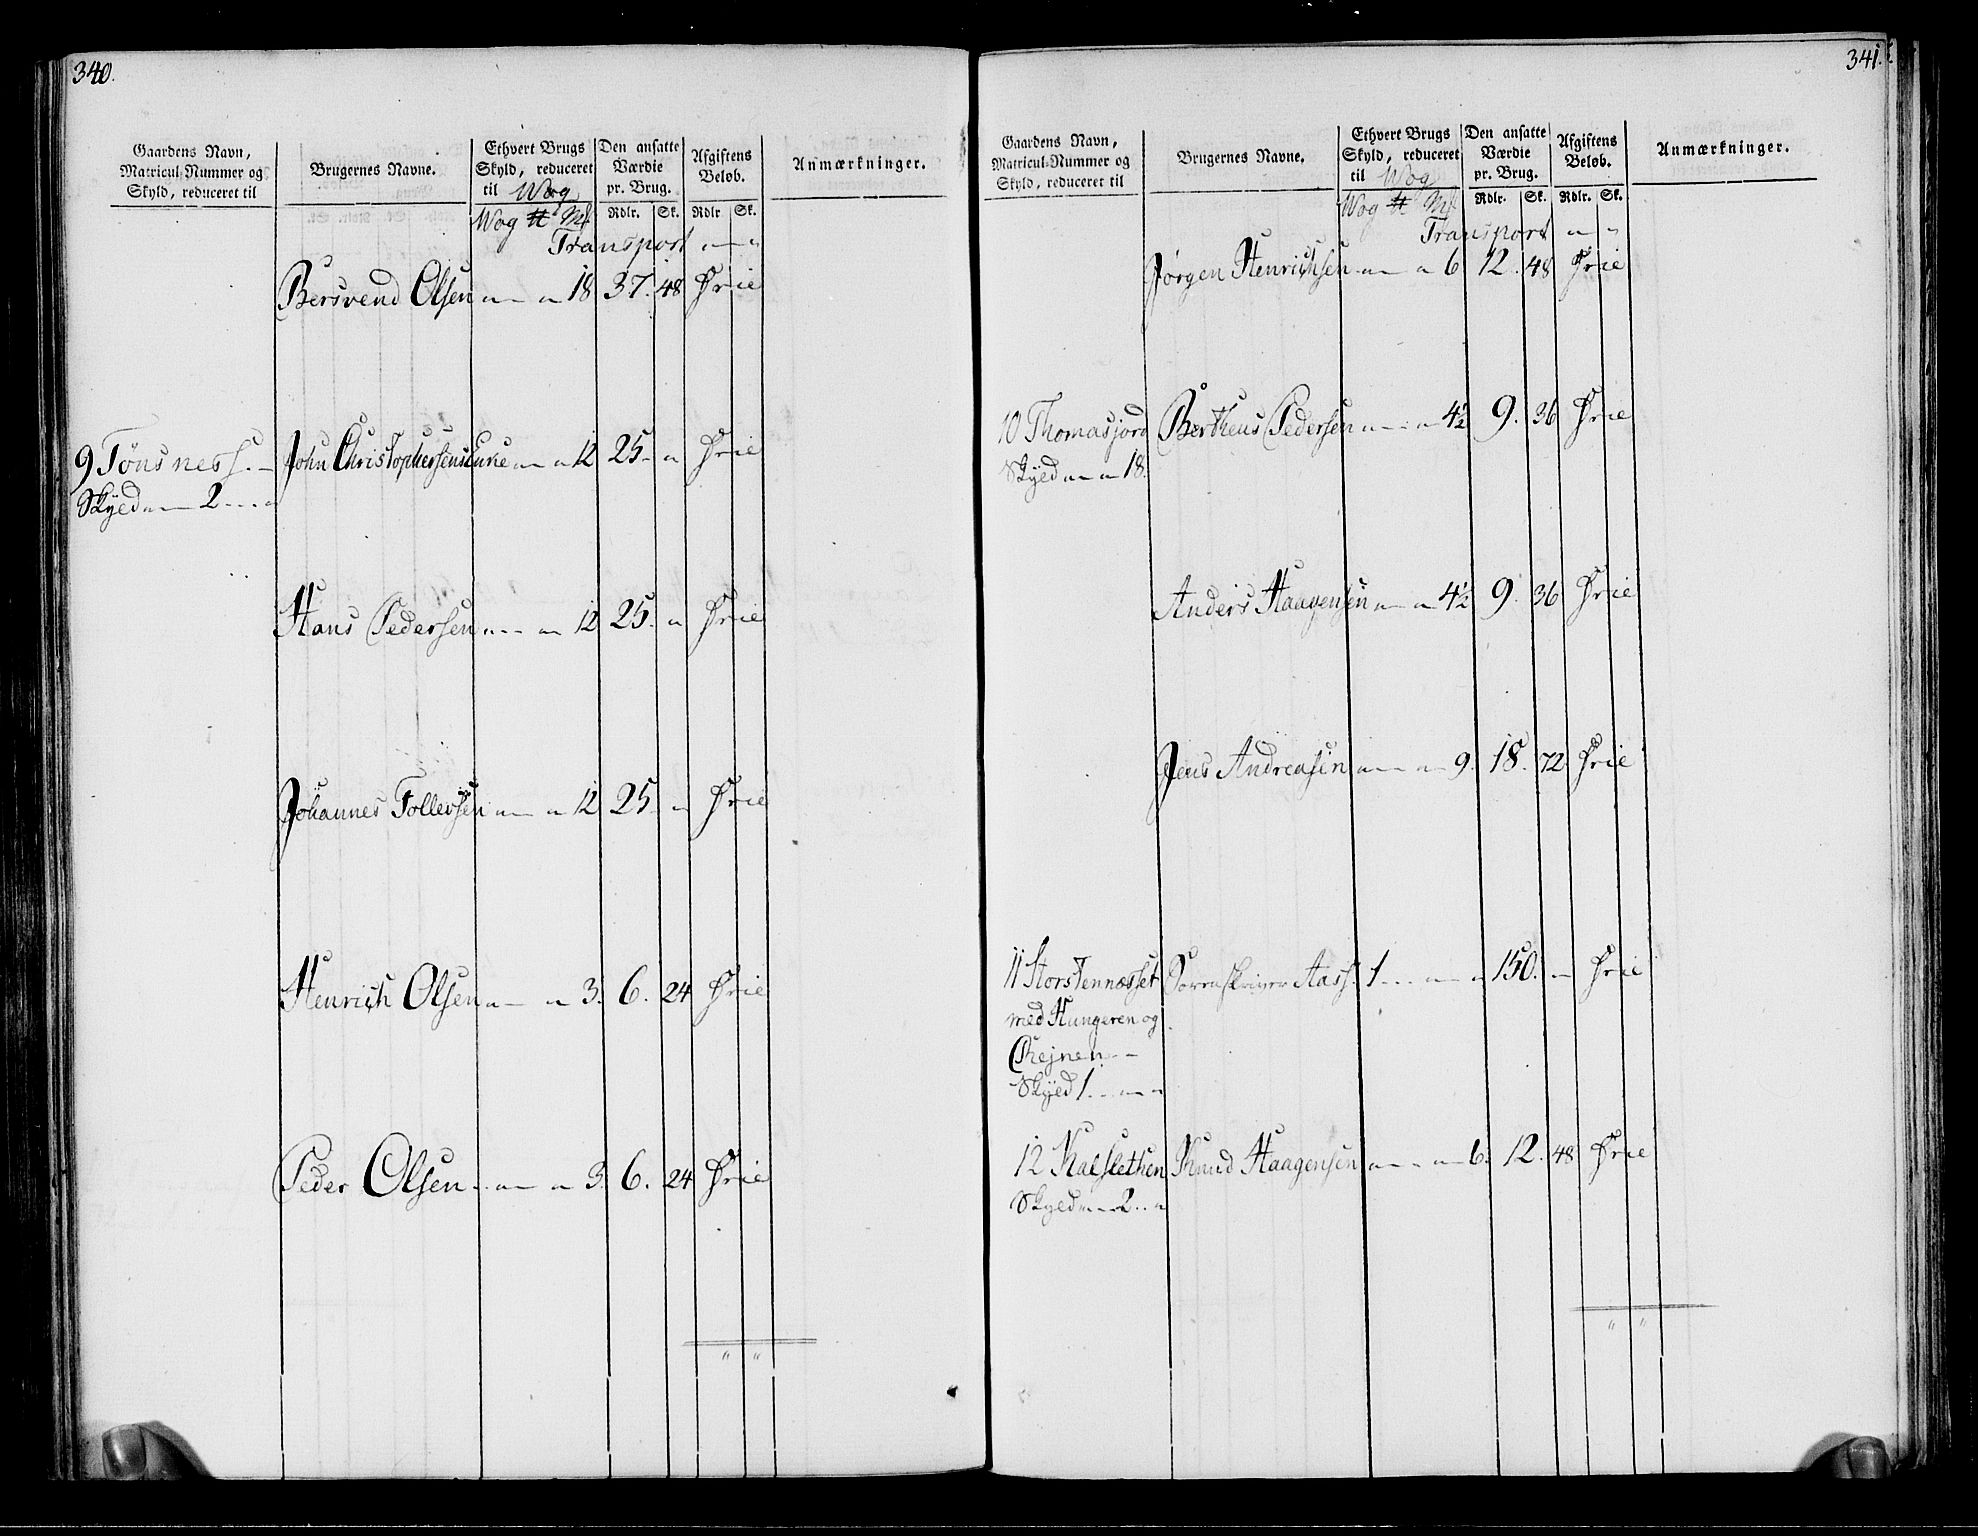 340.
Gaardens Navn, Matricul-Nummer og Skyld, reduceret til
Brugernes Navne.
Ethvert Brugs Skyld, reduceret til Wog
Den ansatte Værdie pr. Brug.
Afgiftens Beløb.
Anmærkninger.
Wog ℔ Mk Rdlr. Sk. Rdlr Sk.
Transport " "
Bersvend Olsen " " 18 37. 48 Frie
9 Tönsness. John Christophersens Enke " " 12 25. " Frie
Skyld " 2 "
Hans Pedersen " " 12 25. " Frie
Johannes Tollersen " " 12 25 " Frie
Henrich Olsen " " 3. 6. 24 Frie
Peder Olsen " " 3. 6. 24 Frie
" "
341.
Gaardens Navn, Matricul-Nummer og Skyld, reduceret til
Brugernes Navne.
Ethvert Brugs Skyld, reduceret til Wog
Den ansatte Værdie pr. Brug.
Afgiftens Beløb.
Anmærkninger.
Wog ℔ Mk Rdlr. Sk. Rdlr. Sk.
Transport " "
Jörgen Henrichsen " " 6 12. 48 Frie
10 Thomasjord Bertheus Pedersen " " 4½ 9. 36 Frie
Skyld " " 18.
Anders Haagensen " " 4½ 9. 36 Frie
Jens Andreasen " " 9. 18. 72 Frie
11 Storstennæsset Sorenskriver Aass. 1 " " 150. " Frie
med Hungeren og
Skyld 1 " "
12 Kalslethen Knud Haagensen " " 6. 12. 48 Frie
Skyld " 2 "
" "